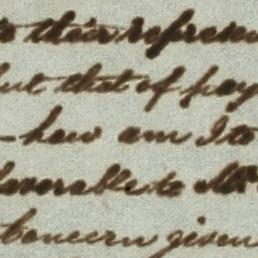 to their represen
but that of pay
- how am I to
favorable to Mr
concern given